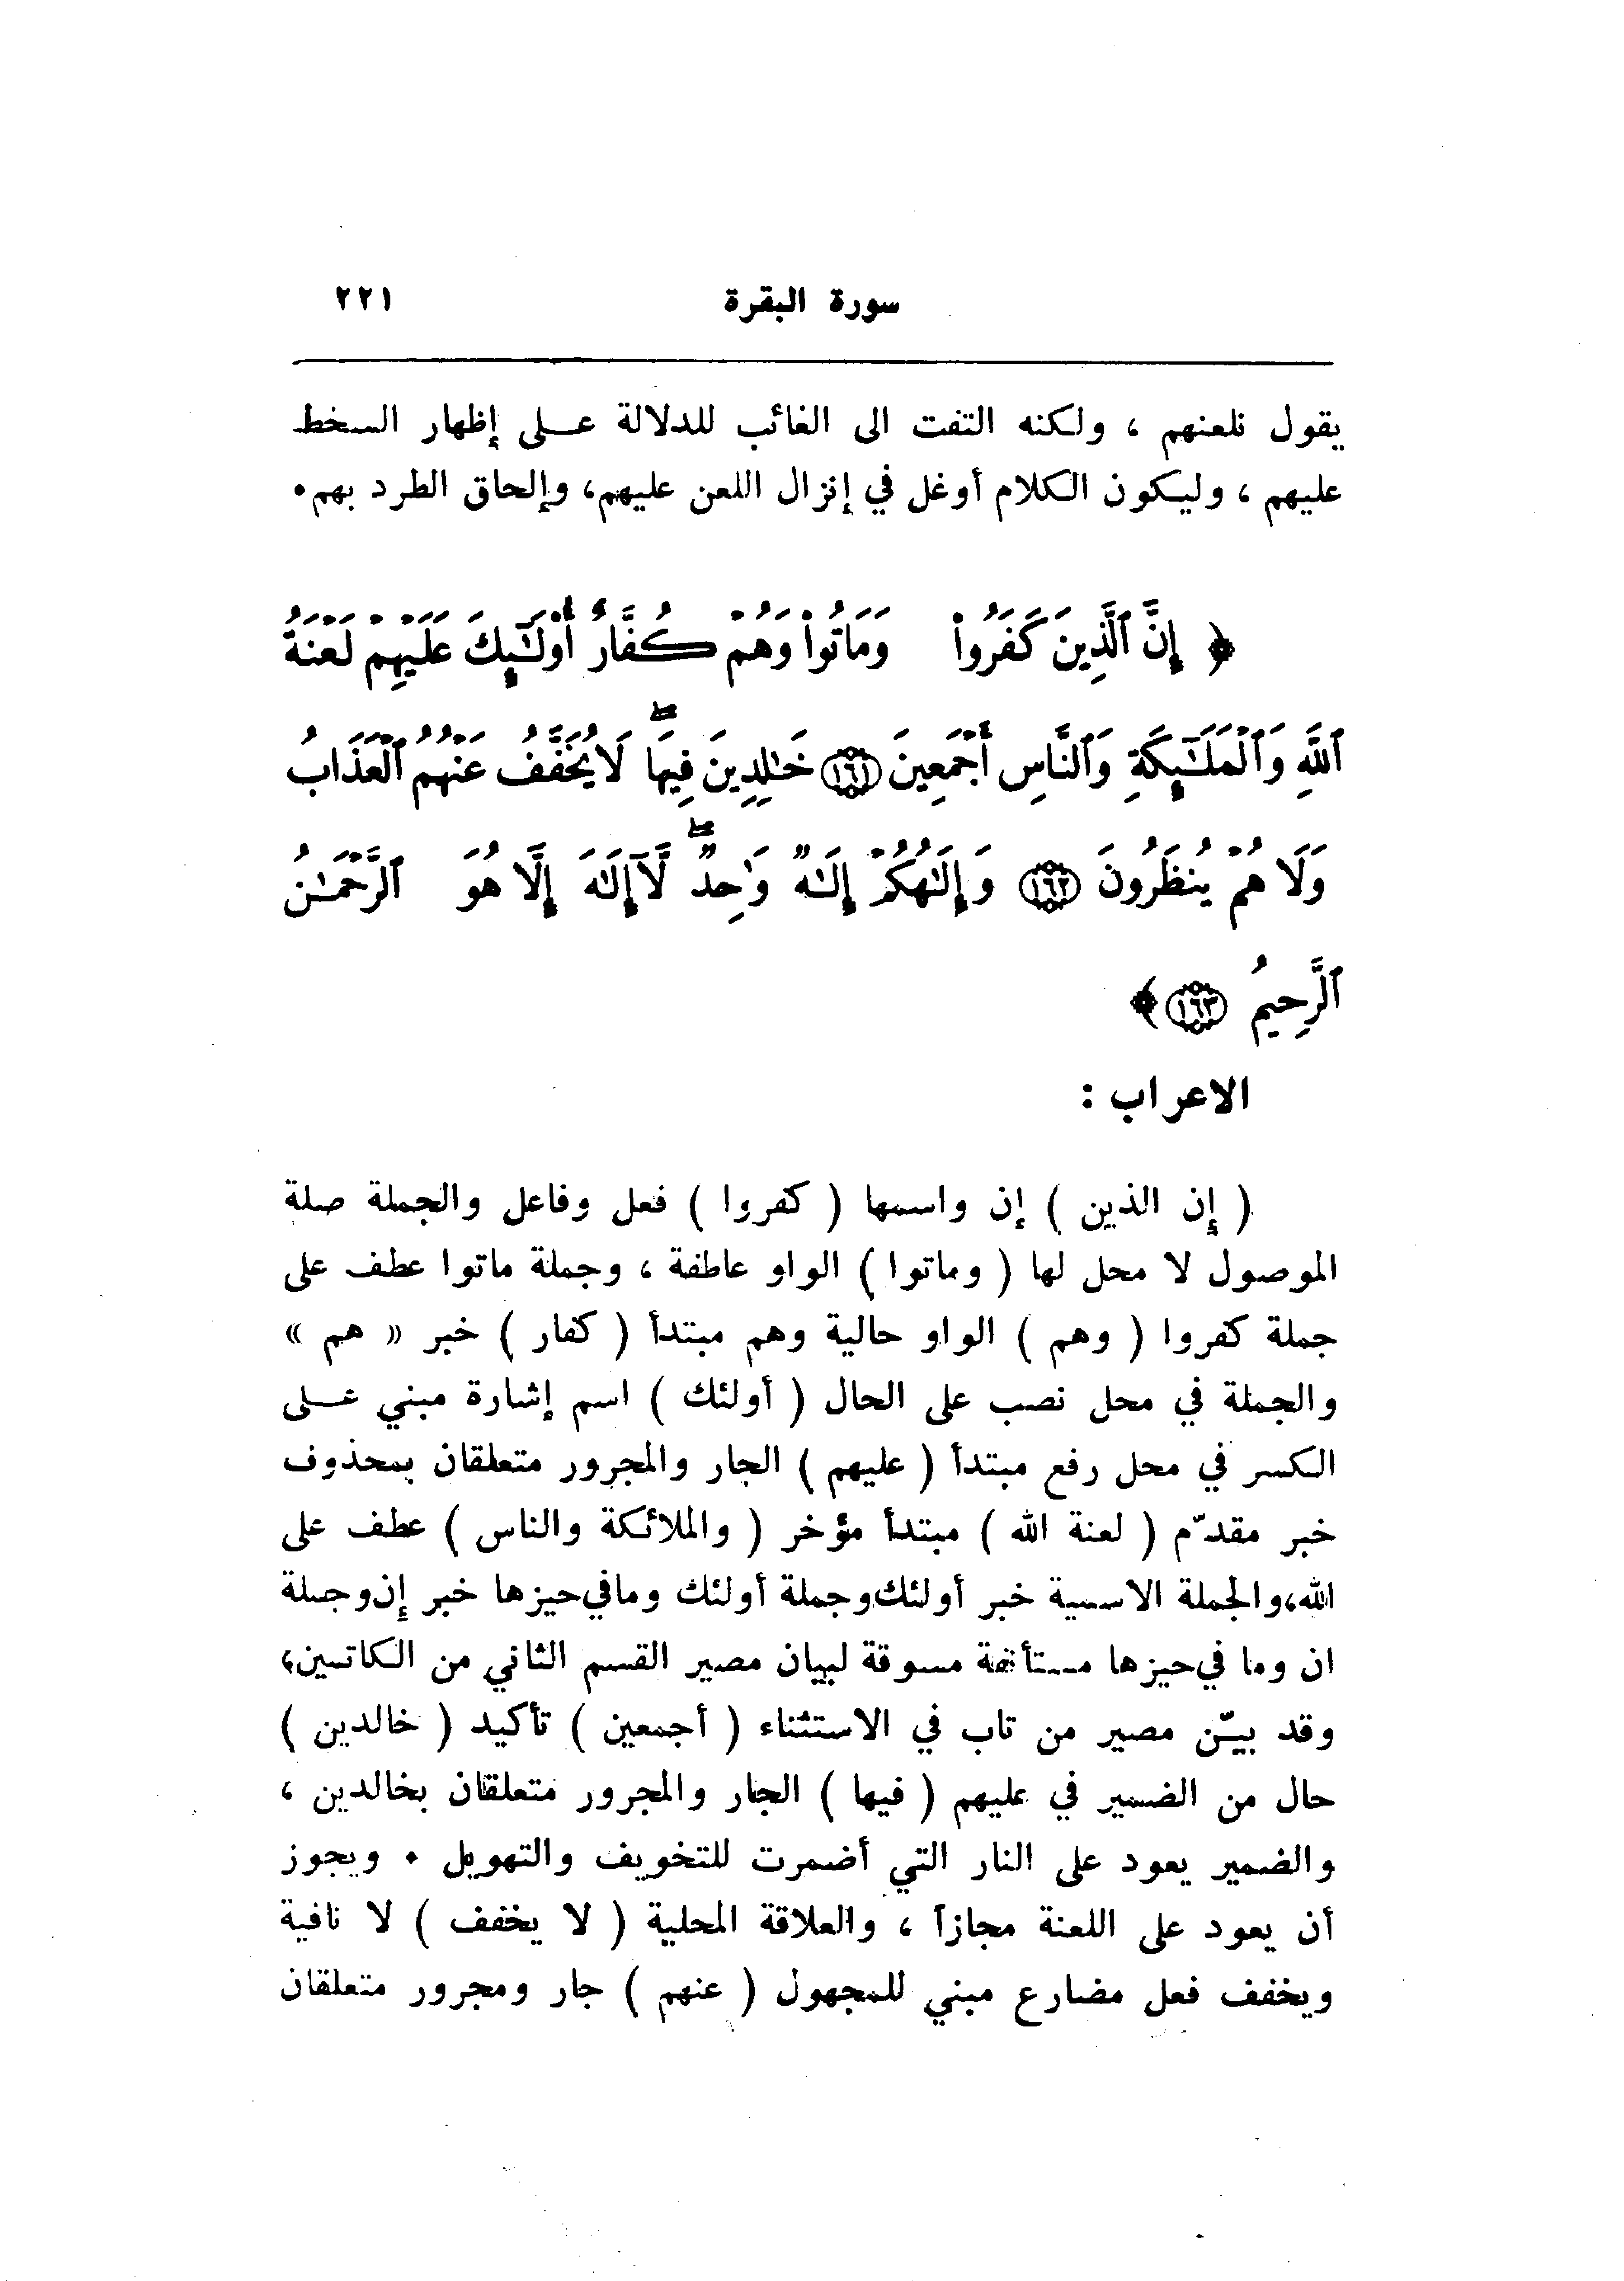 سورة البقرة ٢٢١
يقول نلعنهم ، ولكنه التفت الى الغائب للدلالة عـلى إظهار السخط
عليهم ، وليكون الكلام أوغل في إنزال اللعن عليهم، وإلحاق الطرد بهم٠
﴿ إِنَّ ٱلَّذِينَ كَفَرُوا۟ وَمَاتُوا۟ وَهُمْ كُفَّارٌ أُو۟لَـٰٓئِكَ عَلَيْهِمْ لَعْنَةُ
ٱللَّهِ وَٱلْمَلَـٰٓئِكَةِ وَٱلنَّاسِ أَجْمَعِينَ ١٦١ خَـٰلِدِينَ فِيهَا ۖ لَا يُخَفَّفُ عَنْهُمُ ٱلْعَذَابُ
وَلَا هُمْ يُنظَرُونَ ١٦٢ وَإِلَـٰهُكُمْ إِلَـٰهٌ وَٰحِدٌ ۖ لَّآ إِلَـٰهَ إِلَّا هُوَ ٱلرَّحْمَـٰنُ
ٱلرَّحِيمُ ١٦٣ ﴾
الاعراب :
( إن الذين ) إن واسمها ( كفروا ) فعل وفاعل والجملة صلة
الموصول لا محل لها ( وماتوا ) الواو عاطفة ، وجملة ماتوا عطف على
جملة كفروا ( وهم ) الواو حالية وهم مبتدأ ( كفار ) خبر « هم »
والجملة في محل نصب على الحال ( أولئك ) اسم إشارة مبني عـلى
الكسر في محل رفع مبتدأ ( عليهم ) الجار والمجرور متعلقان بمحذوف
خبر مقدّم ( لعنة الله ) مبتدأ مؤخر ( والملائكة والناس ) عطف على
الله،والجملة الاسمية خبر أولئك وجملة أولئك وما في حيزها خبر إن وجملة
ان وما في حيزها مستأنفة مسوقة لبيان مصير القسم الثاني من الكاتمين،
وقد بيّن مصير من تاب في الاستثناء ( أجمعين ) تأكيد ( خالدين )
حال من الضمير في عليهم ( فيها ) الجار والمجرور متعلقان بخالدين ،
والضمير يعود على النار التي أضمرت للتخويف والتهويل ٠ ويجوز
أن يعود على اللعنة مجازاً ، والعلاقة المحلية ( لا يخفف ) لا نافية
ويخفف فعل مضارع مبني للمجهول ( عنهم ) جار ومجرور متعلقان